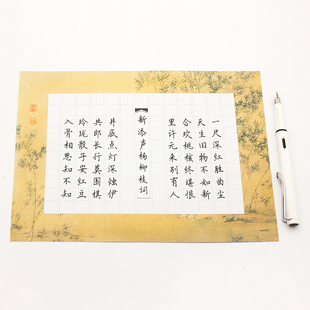 一尺深红胜曲尘
天生旧物不如新
合欢桃核终堪恨
里许元来别有人
新添声杨柳枝词
井底点灯深烛伊
共郎长行莫围棋
玲珑骰子安红豆
入骨相思知不知